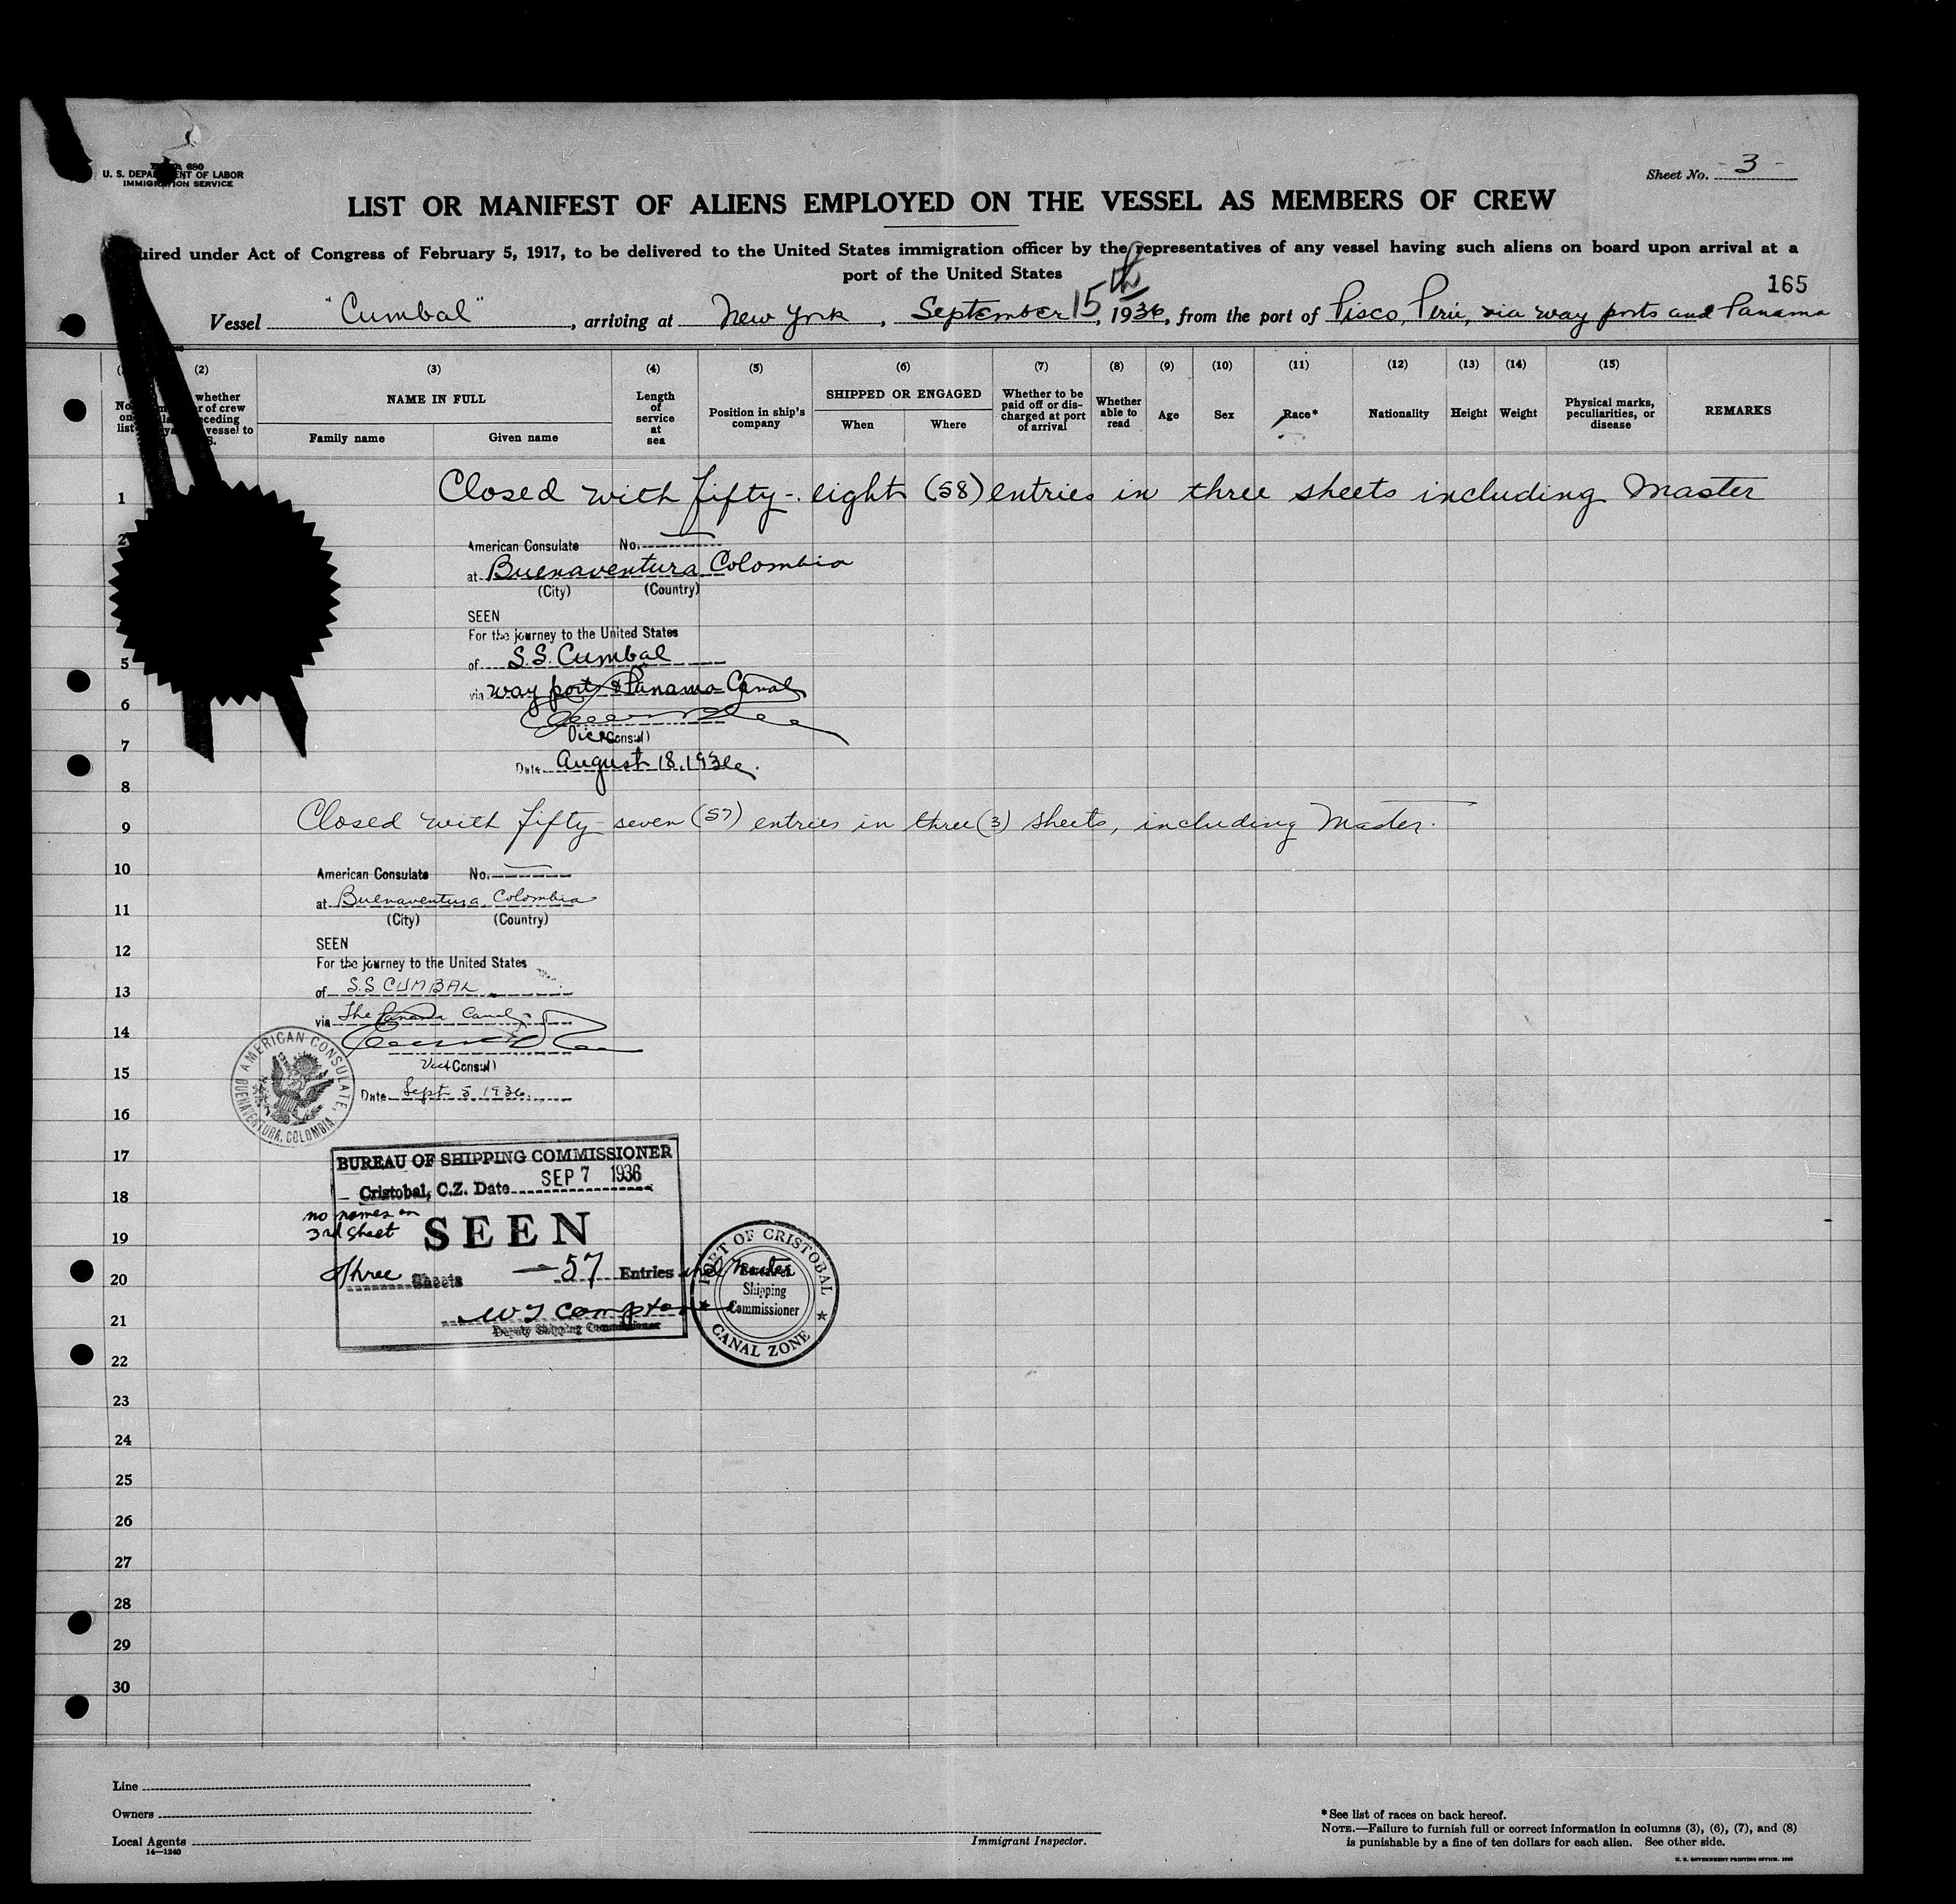 680
U. S. DEPARTMENT OF LABOR
IMMIGRATION SERVICE
Sheet No. - 3 -
LIST OR MANIFEST OF ALIENS EMPLOYED ON THE VESSEL AS MEMBERS OF CREW
uired under Act of Congress of February 5, 1917, to be delivered to the United States immigration officer by the representatives of any vessel having such aliens on board upon arrival at a
port of the United States
165
Vessel "Cumbal", arriving at New York, September 15th, 1936, from the port of Pisco, Peru, via way ports and Panama
(2) (3) (4) (5) (6) (7) (8) (9) (10) (11) (12) (13) (14) (15)
No. on list
whether
r of crew
eceding
vessel to
S.
NAME IN FULL
Family name Given name
Length of service at sea
Position in ship's company
SHIPPED OR ENGAGED
When Where
Whether to be paid off or discharged at port of arrival
Whether able to read
Age
Sex
Race*
Nationality
Height
Weight
Physical marks, peculiarities, or disease
REMARKS
1 Closed with fifty-eight (58) entries in three sheets including Master
2
American Consulate No.
at Buenaventura Colombia
(City) (Country)
SEEN
For the journey to the United States
5
of S.S. Cumbal
via way ports & Panama Canal
6
Vice Consul)
7
Date August 18, 1936.
8
9 Closed with fifty-seven (57) entries in three (3) sheets, including Master.
10 American Consulate No.
at Buenaventura, Colombia
11 (City) (Country)
12 SEEN
For the journey to the United States
13 of S.S CUMBAL
via The Panama Canal
14
Vice Consul)
15 Date Sept 5 1936
AMERICAN CONSULATE,
BUENAVENTURA, COLOMBIA
16
17 BUREAU OF SHIPPING COMMISSIONER
Cristobal, C.Z. Date SEP 7 1936
18
no names on
3rd sheet
19 SEEN
20 Three Sheets 57 Entries incl Master
W T Compton
21 Deputy Shipping Commissioner
PORT OF CRISTOBAL
Shipping
Commissioner
CANAL ZONE
22
23
24
25
26
27
28
29
30
Line
Owners
Local Agents
14—1240
Immigrant Inspector.
* See list of races on back hereof.
NOTE.—Failure to furnish full or correct information in columns (3), (6), (7), and (8)
is punishable by a fine of ten dollars for each alien. See other side.
U. S. GOVERNMENT PRINTING OFFICE.